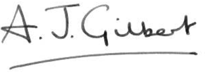 A. J. Gilbert